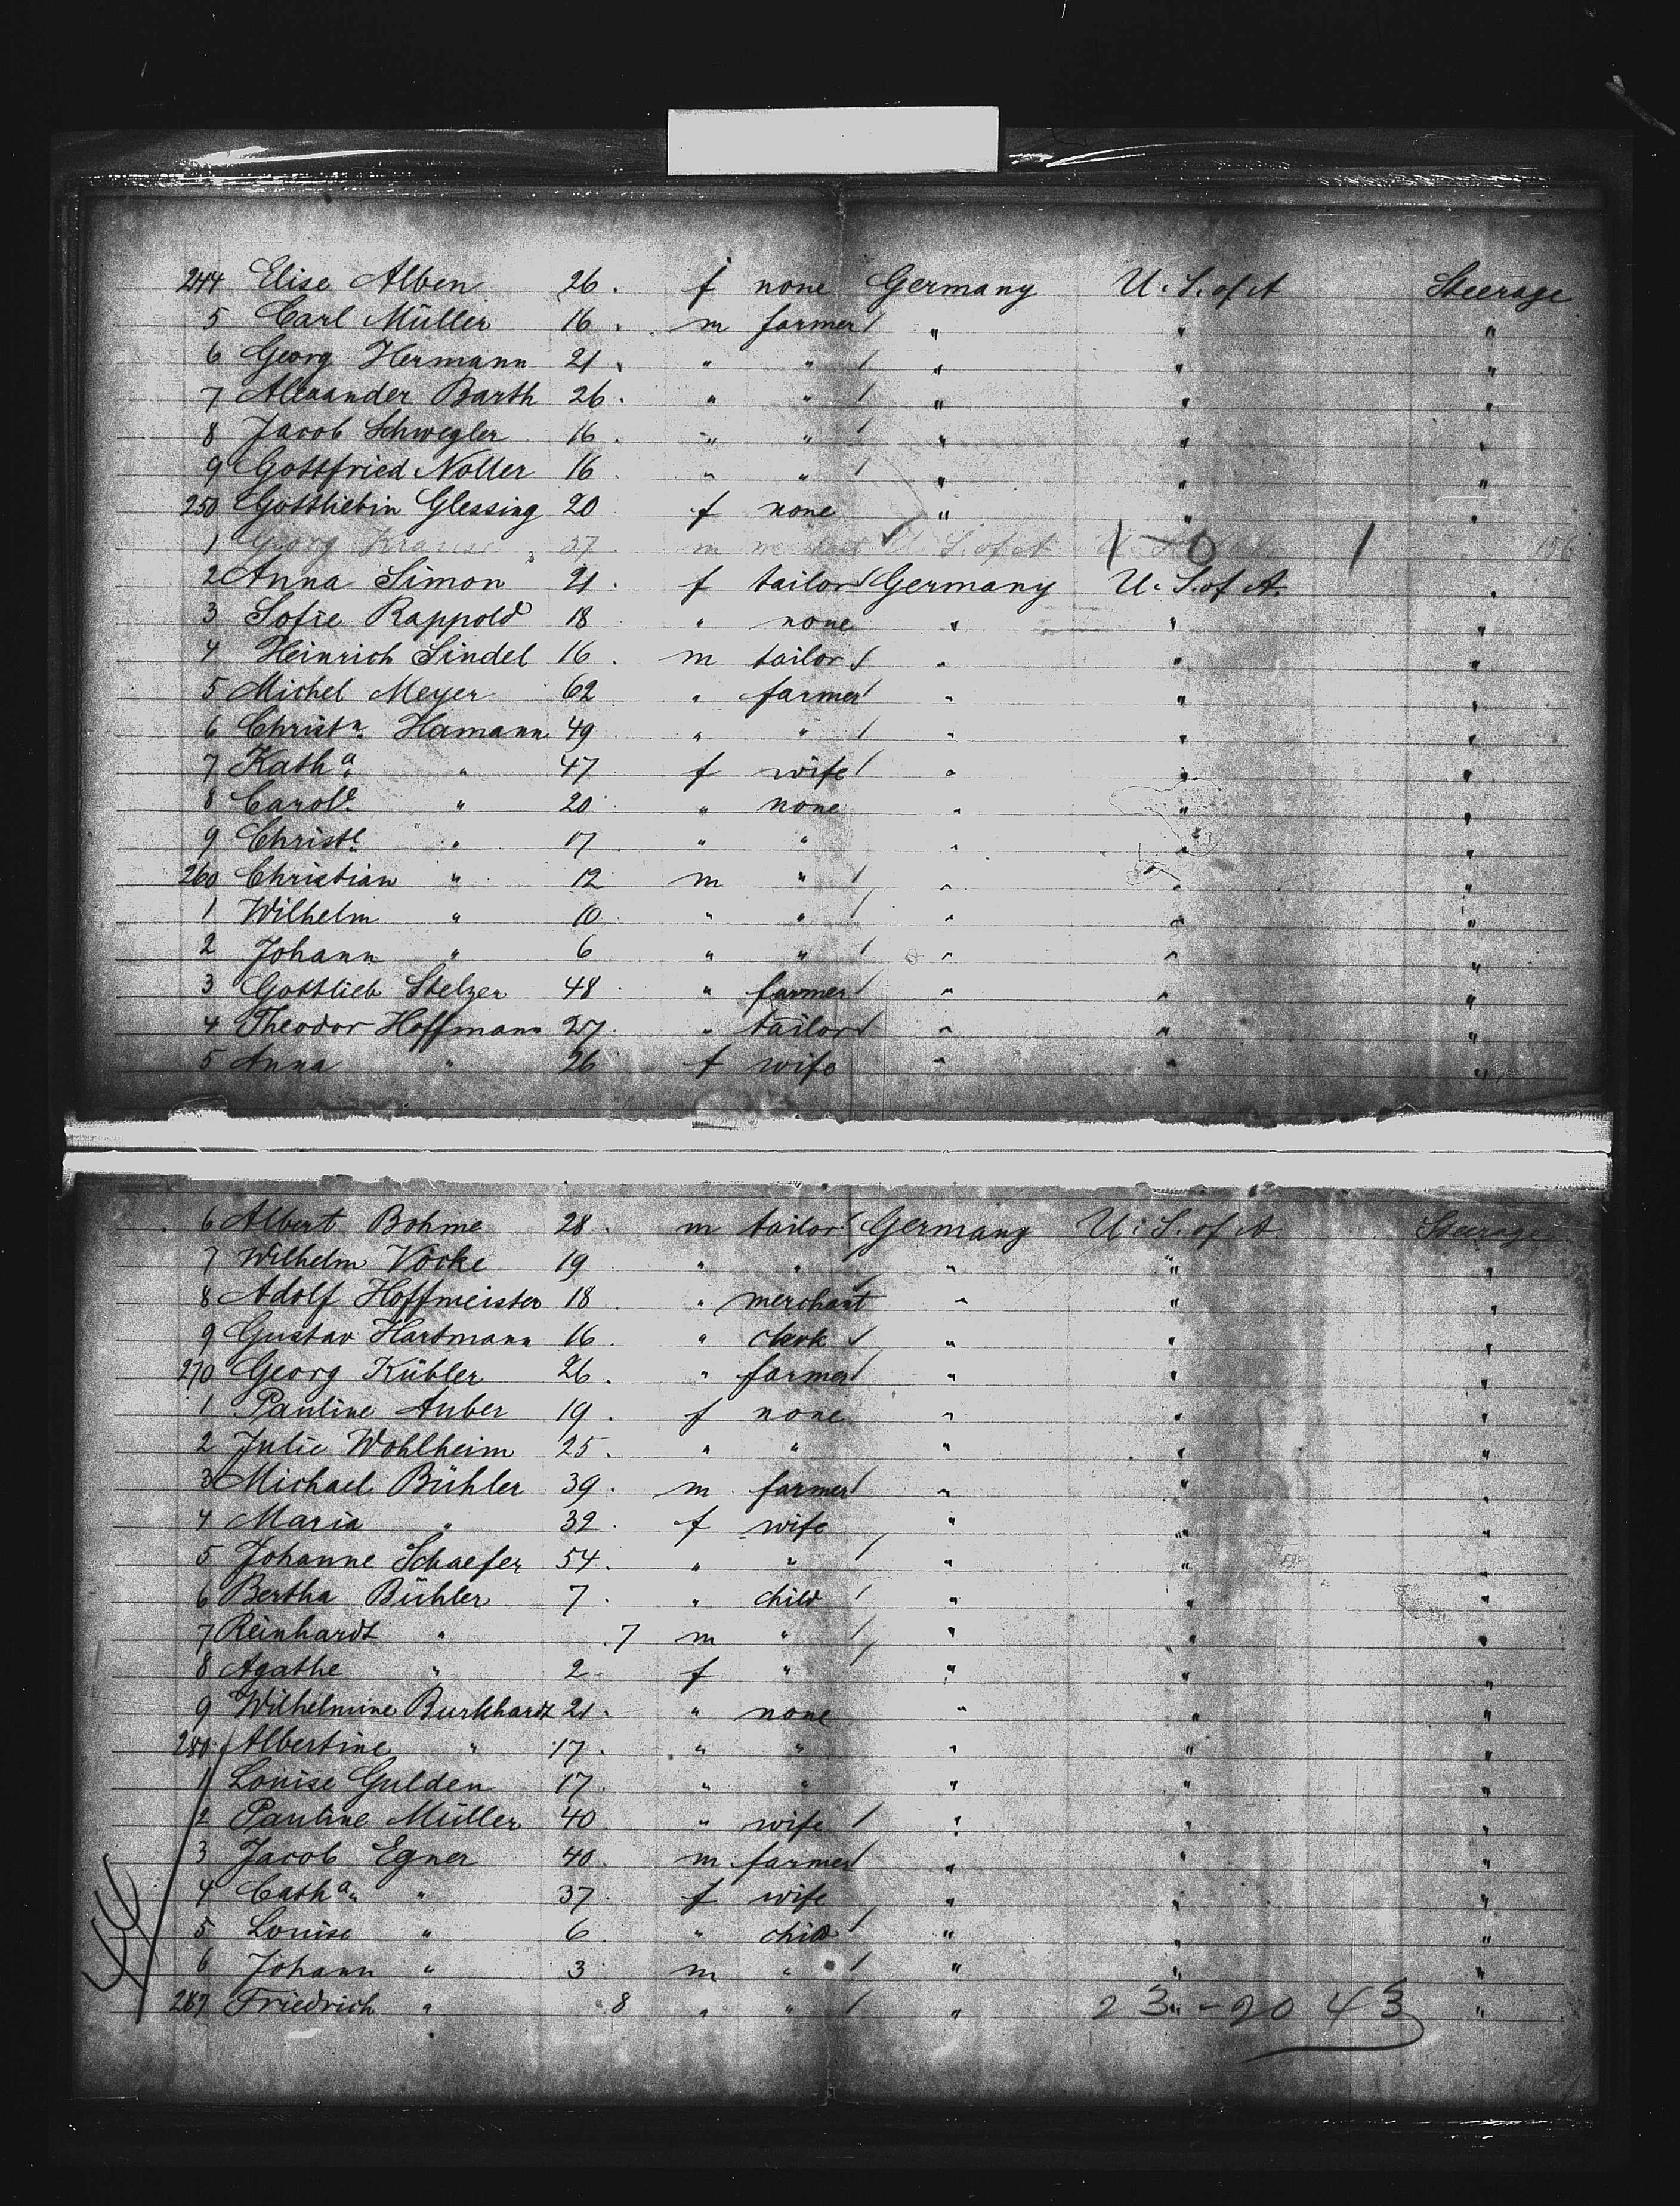 244 Elise Alben 26. f none Germany U. S. of A Steerage
5 Carl Müller 16. m farmer / " " "
6 Georg Hermann 21. " " / " " "
7 Alexander Barth 26. " " / " " "
8 Jacob Schwegler 16. " " / " " "
9 Gottfried Noller 16 " " / " " "
250 Gottliebin Glessing 20 f none " " "
1 Georg Krause 37. m U. S. of A 1-0 1 156
2 Anna Simon 21. f tailor / Germany U. S. of A. "
3 Sofie Rappold 18 " none " " "
4 Heinrich Sindel 16. m tailor / " " "
5 Michel Meyer 62 " farmer / " " "
6 Christn. Hamann 49 " " / " " "
7 Katha. " 47 f wife / " " "
8 Carole. " 20 " none " " "
9 Christe. " 17 " " " " "
260 Christian " 12 m " / " " "
1 Wilhelm " 10 " " / " " "
2 Johann " 6 " " / " " "
3 Gottlieb Stelzer 48. " farmer / " " "
4 Theodor Hoffmann 27. " tailor / " " "
5 Anna " 26 f wife " " "
6 Albert Bohme 28. m tailor / Germany U. S. of A. Steerage
7 Wilhelm Vöcke 19 " " / " " "
8 Adolf Hoffmeister 18. " merchant " " "
9 Gustav Hartmann 16. " clerk / " " "
270 Georg Kübler 26. " farmer / " " "
1 Pauline Auber 19. f none " " "
2 Julie Wohlheim 25. " " " " "
3 Michael Bühler 39. m farmer / " " "
4 Maria " 32. f wife " " "
5 Johanne Schaefer 54. " " / " " "
6 Bertha Bühler 7. " child / " " "
7 Reinhardt " .7 m " / " " "
8 Agathe " 2 f " " " "
9 Wilhelmine Burkhardt 21. " none " " "
280 Albertine " 17. " " " " "
1 Louise Gulden 17. " " " " "
2 Pauline Müller 40 " wife / " " "
3 Jacob Egner 40. m farmer / " " "
4 Catha. " 37. f wife " " "
5 Louise " 6 " child / " " "
6 Johann " 3 m " / " " "
287 Friedrich " 8 " " / " 23 - 20 43 "